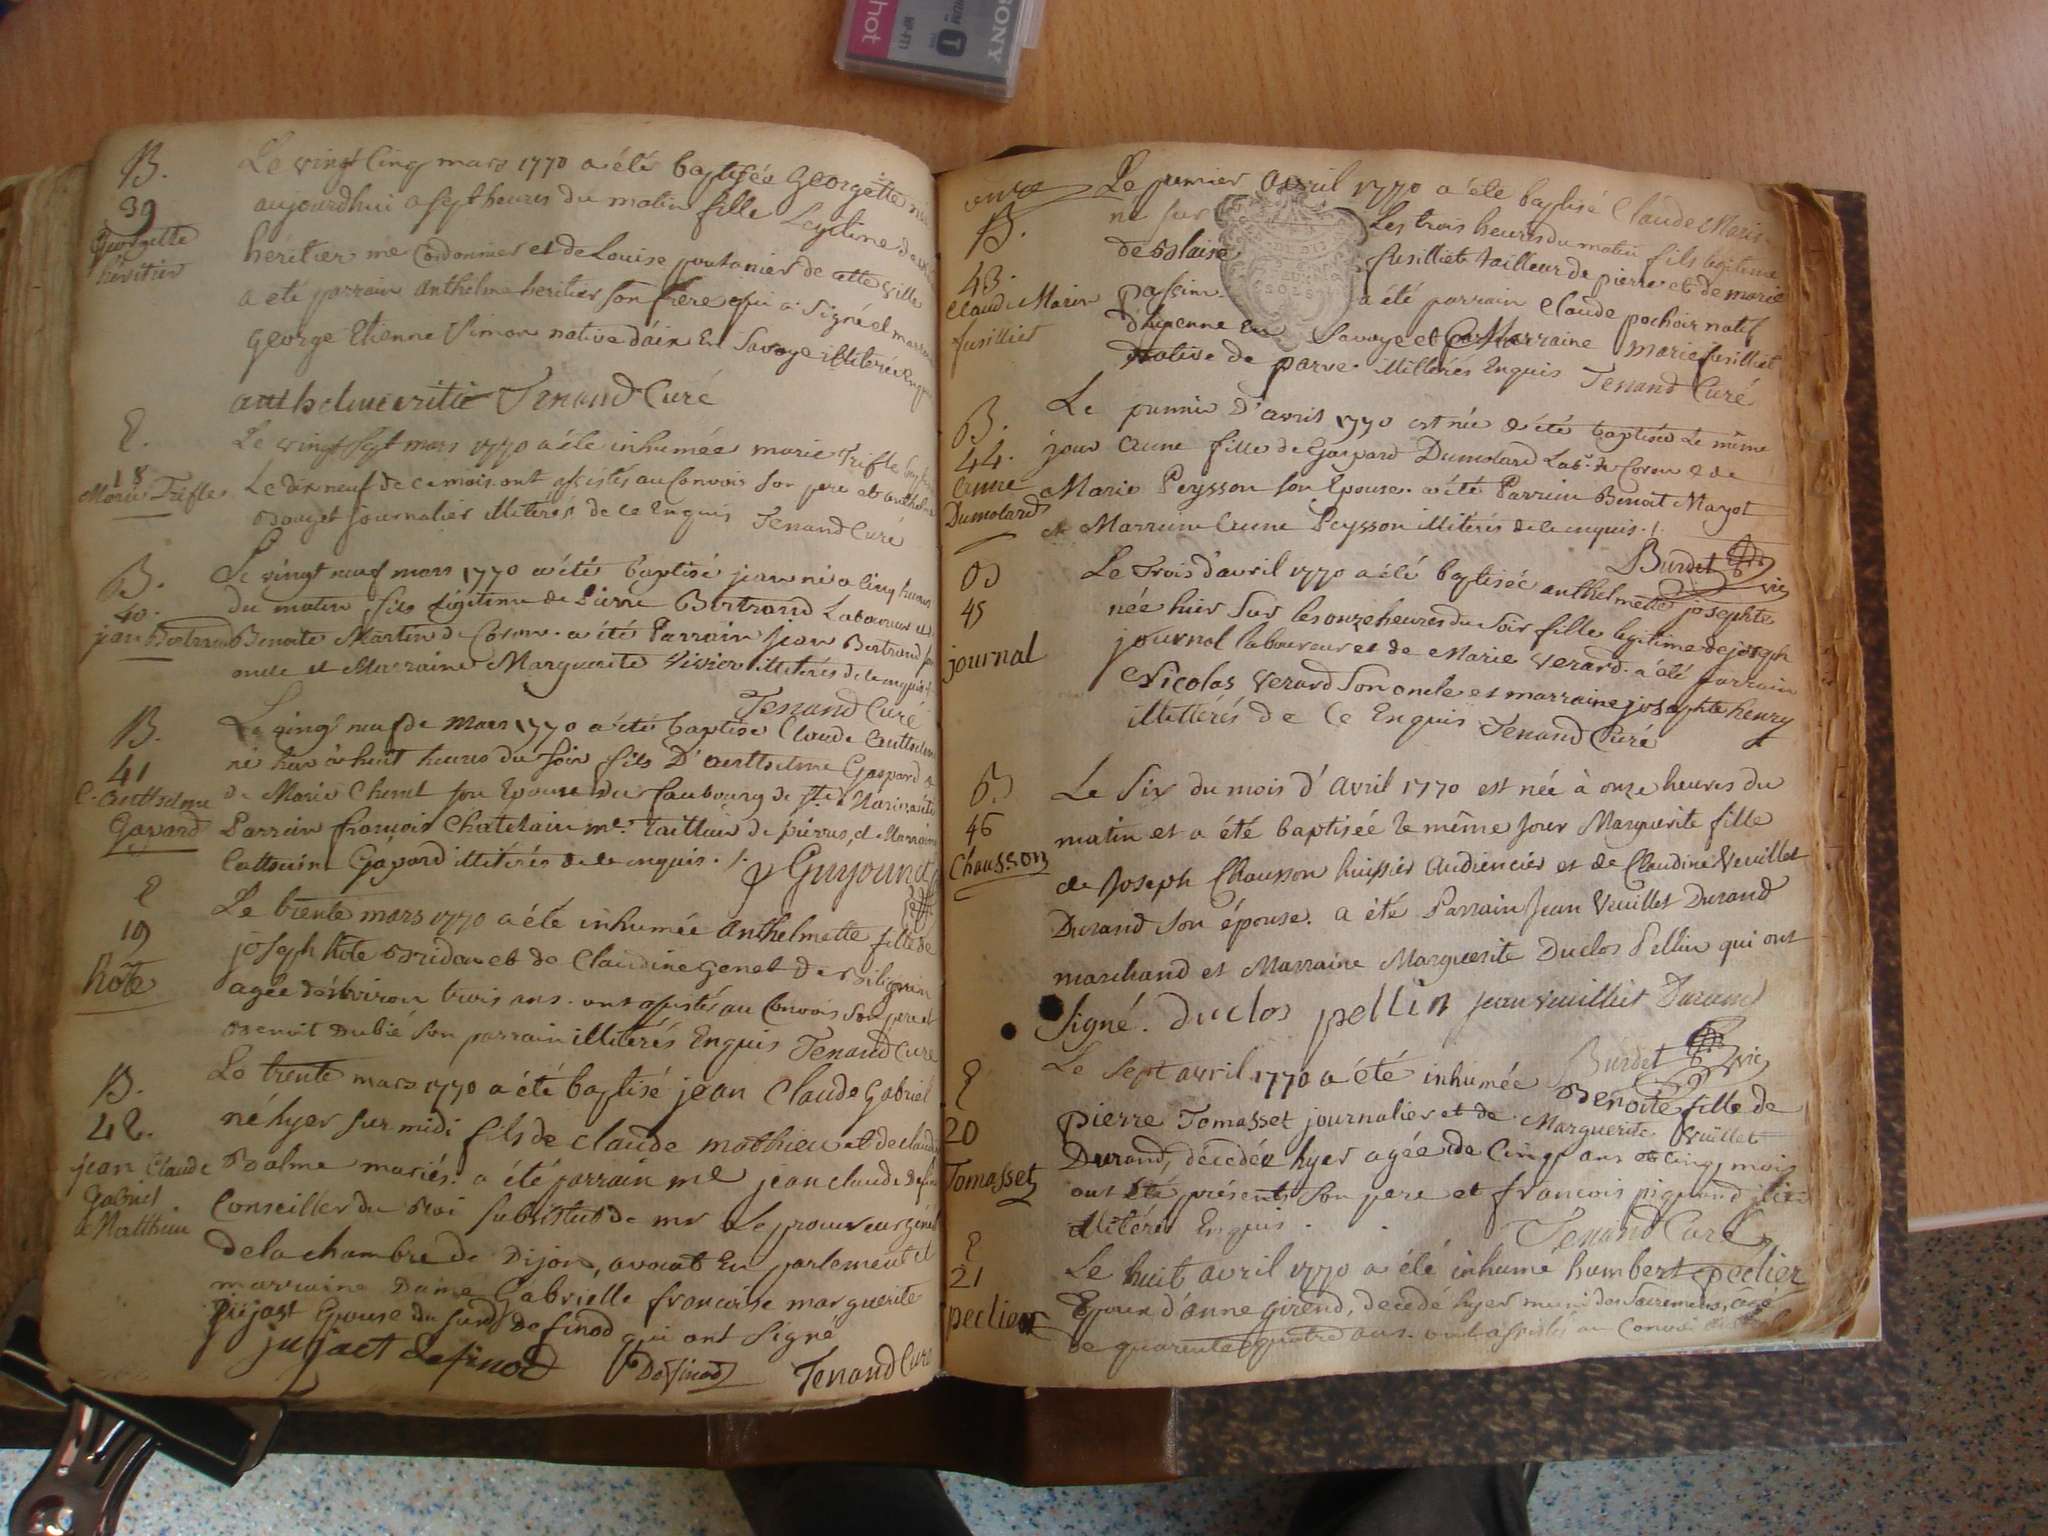 SONY
hot
B.
39
Georgette
héritier
Le vingt Cinq mars 1770 a été baptisée Georgette née
aujourdhui a sept heures du matin fille Legitime de
heritier me Cordonnier et de Louise pontanier de cette ville
a été parrain anthelme heritier son frere qui a Signé et marraine
george Etienne Simon native d'aix En Savoye illiterée Enquis
anthelme eritie Tenand Curé
E.
18
Marie Trefle
Le vingt Sept mars 1770 a été inhumée marie Trefle
Le dix neuf de ce mois. ont assistés au Convoir Son pere et anthelme
journalier illiterés de ce Enquis Tenand Curé
B.
40.
jean Bertrand
Le vingt neuf mars 1770 a été baptisé jean né a Cinq heures
du matin fils légitime de Pierre Bertrand Laboureur et
Benoite Martin de Coron. a été Parrain Jean Bertrand son
oncle et Marraine Marguerite Vivier illitérés de ce enquis
Tenand Curé
B.
41
C. Anthelme
Gapard
Le vingt neuf de Mars 1770 a été baptisé Claude Anthelme
né hier à huit heures du soir fils D'Anthelme Gaspard &
de Marie Chenet son Epouse du faubourg de
Parrain françois Chatelain me. Tailleur de pierres, & Marraine
Catherine Gapard illitérés de ce enquis.
Guyonnet
E
19
hôte
Le trente mars 1770 a été inhumée anthelmette fille de
joseph hôte et de Claudine genet de
agée d'environ trois ans. ont assistés au Convois son pere et
Benoit Dubié Son parrain illiterés Enquis Tenand Curé
B.
42.
jean Claude
Gabriel
Matthieu
Le trente mars 1770 a été baptisé jean Claude Gabriel
né hyer sur midi fils de Claude mathieu et de Claudine
Balme mariés. a été parrain me jean claude Definod
Conseiller du Roi Substitut de mr Le procureur géneral
de la chambre de Dijon, avocat En parlement et
marraine Dame Gabrielle françoise marguerite
jujast Epouse du Sieur De finod qui ont Signé
jujact definod Definod Tenand Curé
B.
43.
Claude Marin
fusillier
Le premier Avril 1770 a été baptisé Claude Marin
né sur Les trois heures du matin fils legitime
de Blaise fusilliet tailleur de pierre et de marie
passin. a été parrain Claude pochoir natif
d'hyenne En Savoye et Marraine Marie fusilliet
Native de parve. illitterés Enquis Tenand Curé
B.
44.
Anne
Dumolard
Le premier D'avril 1770 est née & été baptisée Le même
jour Anne fille de Gaspard Dumolard Lab.r de Coron & de
Marie Peysson son Epouse. a été Parrain Benoit Mayot
& Marraine Anne Peysson illitérés de ce enquis.
Burdet vic
B
45
journal
Le Trois d'avril 1770 a été baptisée anthelmette josephte
née hier Sur les onze heures du Soir fille legitime de joseph
journal laboureur et de Marie Verard. a été parrain
Nicolas Verard Son oncle et marraine josephte henry
illitterés de Ce Enquis Tenand Curé
B
46
Chausson
Le Six du mois d'Avril 1770 est née à onze heures du
matin et a été baptisée le même Jour Marguerite fille
de Joseph Chausson huissier Audiencier et de Claudine Vuillet
Durand Son épouse. a été Parrain Jean Vuillet Durand
marchand et Marraine Marguerite Duclos Pellin qui ont
Signé. duclos pellin jean vuilliet Durand
Burdet vic
E
20
Tomasset
Le Sept avril 1770 a été inhumée Benoite fille de
pierre Tomasset journalier et de Marguerite Vuillet
Durand, décedée hyer agée de Cinq ans et cinq mois
ont été présents Son pere et françois
illitérés Enquis. Tenand Curé
E
21
peclier
Le huit avril 1770 a été inhumé humbert peclier
Epoux d'anne girend, decedé hyer muni des Sacremens, agé
de quarente quatre ans. ont assistés au Convoi